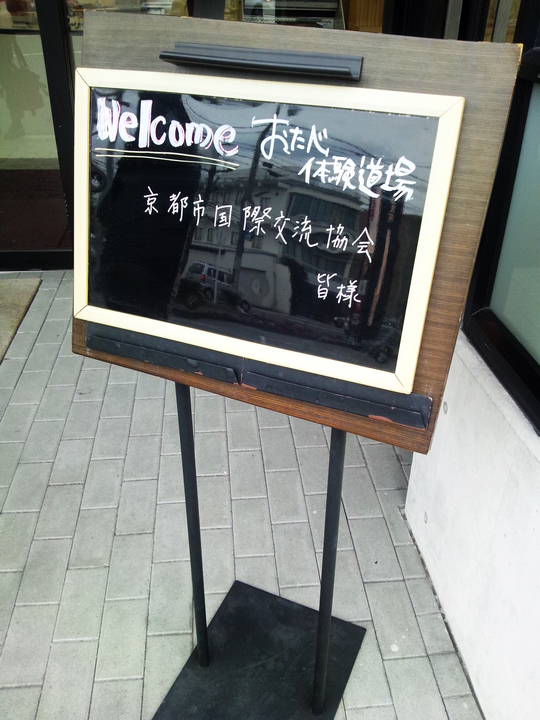 Welcome おたべ
体験道場
京都市国際交流協会
皆様